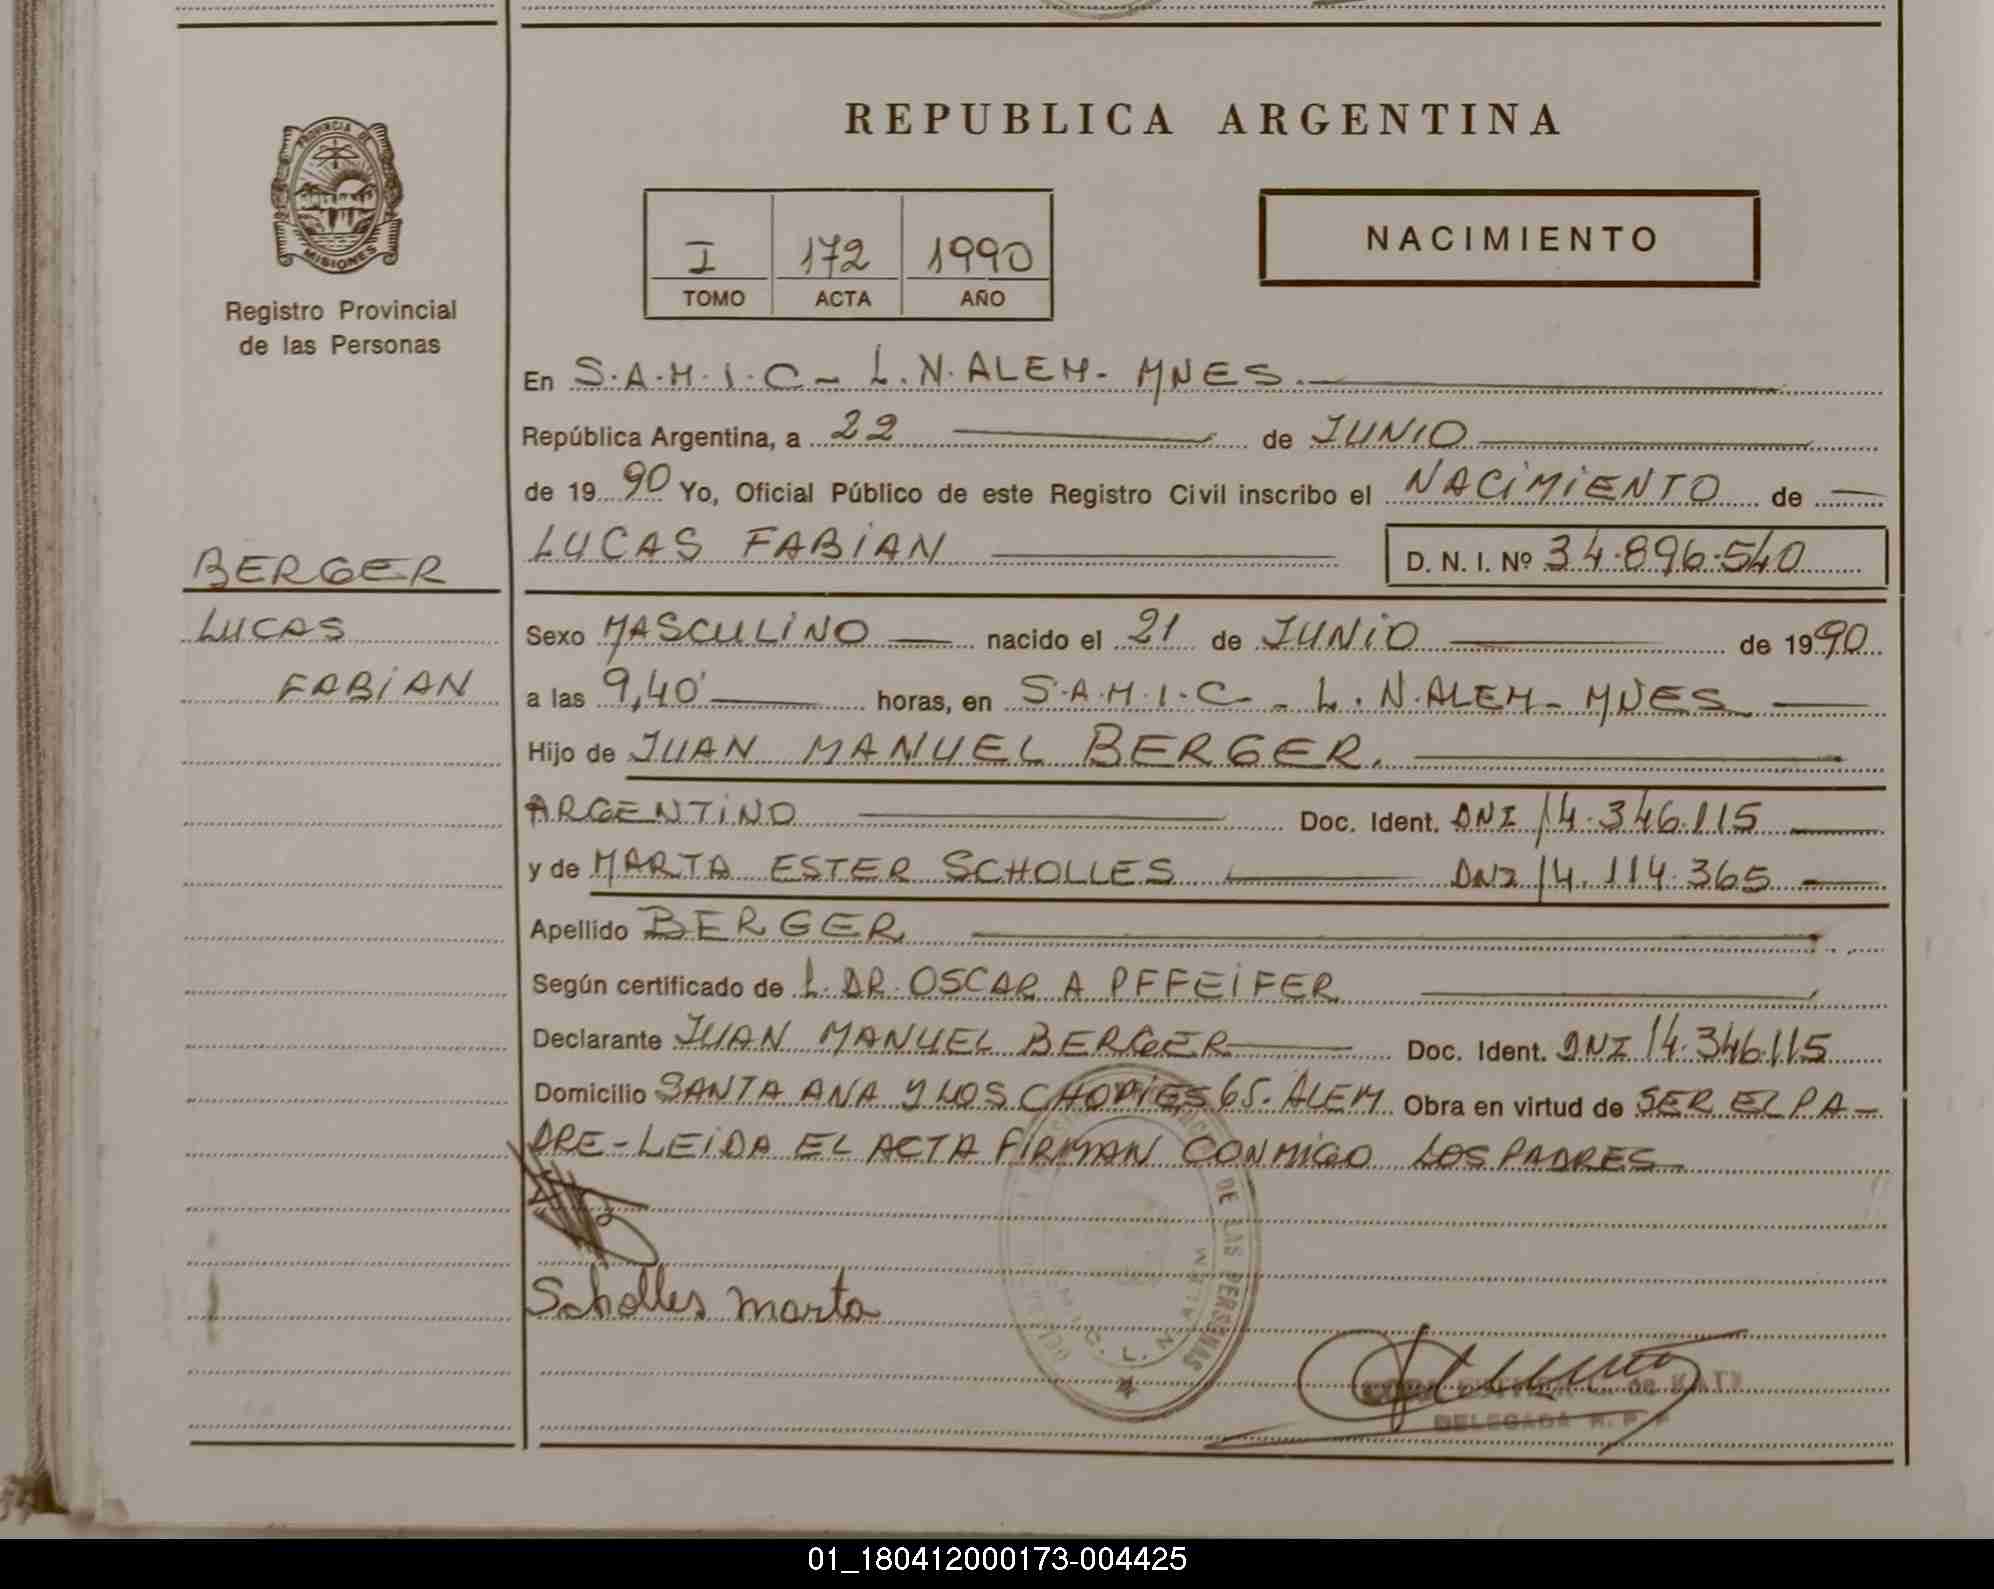 REPUBLICA ARGENTINA
PROVINCIA DE MISIONES
Registro Provincial
de las Personas
I 172 1990
TOMO ACTA AÑO
NACIMIENTO
En S.A.M.I.C - L.N.ALEM - MNES.
República Argentina, a 22 de JUNIO
de 1990 Yo, Oficial Público de este Registro Civil inscribo el NACIMIENTO de
LUCAS FABIAN D. N. I. Nº 34.896.540
BERGER
LUCAS
FABIAN
Sexo MASCULINO nacido el 21 de JUNIO de 1990
a las 9,40' horas, en S.A.M.I.C - L.N.ALEM - MNES
Hijo de JUAN MANUEL BERGER.
ARGENTINO Doc. Ident. DNI 14.346.115
y de MARTA ESTER SCHOLLES DNI 14.114.365
Apellido BERGER
Según certificado de L. DR. OSCAR A PFFEIFER
Declarante JUAN MANUEL BERGER Doc. Ident. DNI 14.346.115
Domicilio SANTA ANA Y LOS 65. ALEM Obra en virtud de SER EL PA-
DRE - LEIDA EL ACTA FIRMAN CONMIGO LOS PADRES
DE LAS PERSONAS
L. N. ALEM
Scholles Marta
DELEGADA R. P. P
01_180412000173-004425